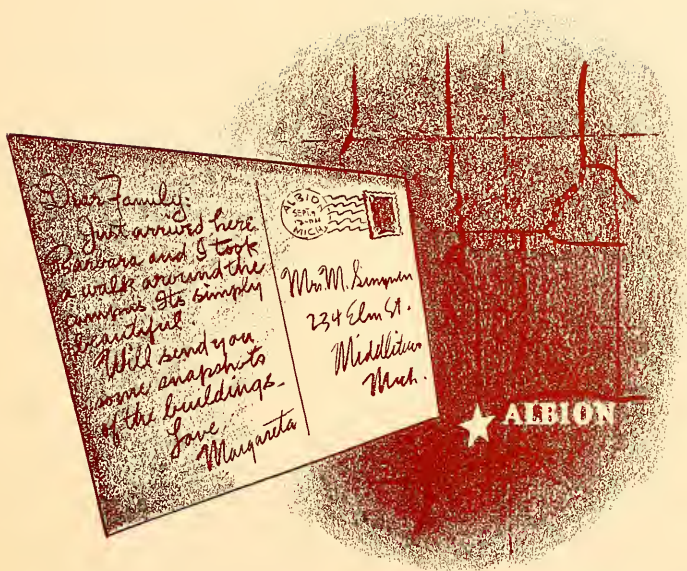 Dear Family:
Just arrived here
Barbara and I took
a walk around the
campus. Its simply
beautiful.
Will send you
some snapshots
of the buildings.
Love
Margareta
ALBION
SEP 14
MICH.
Mrs. M. Simpson
234 Elm St.
Middletown
Mich.
ALBION